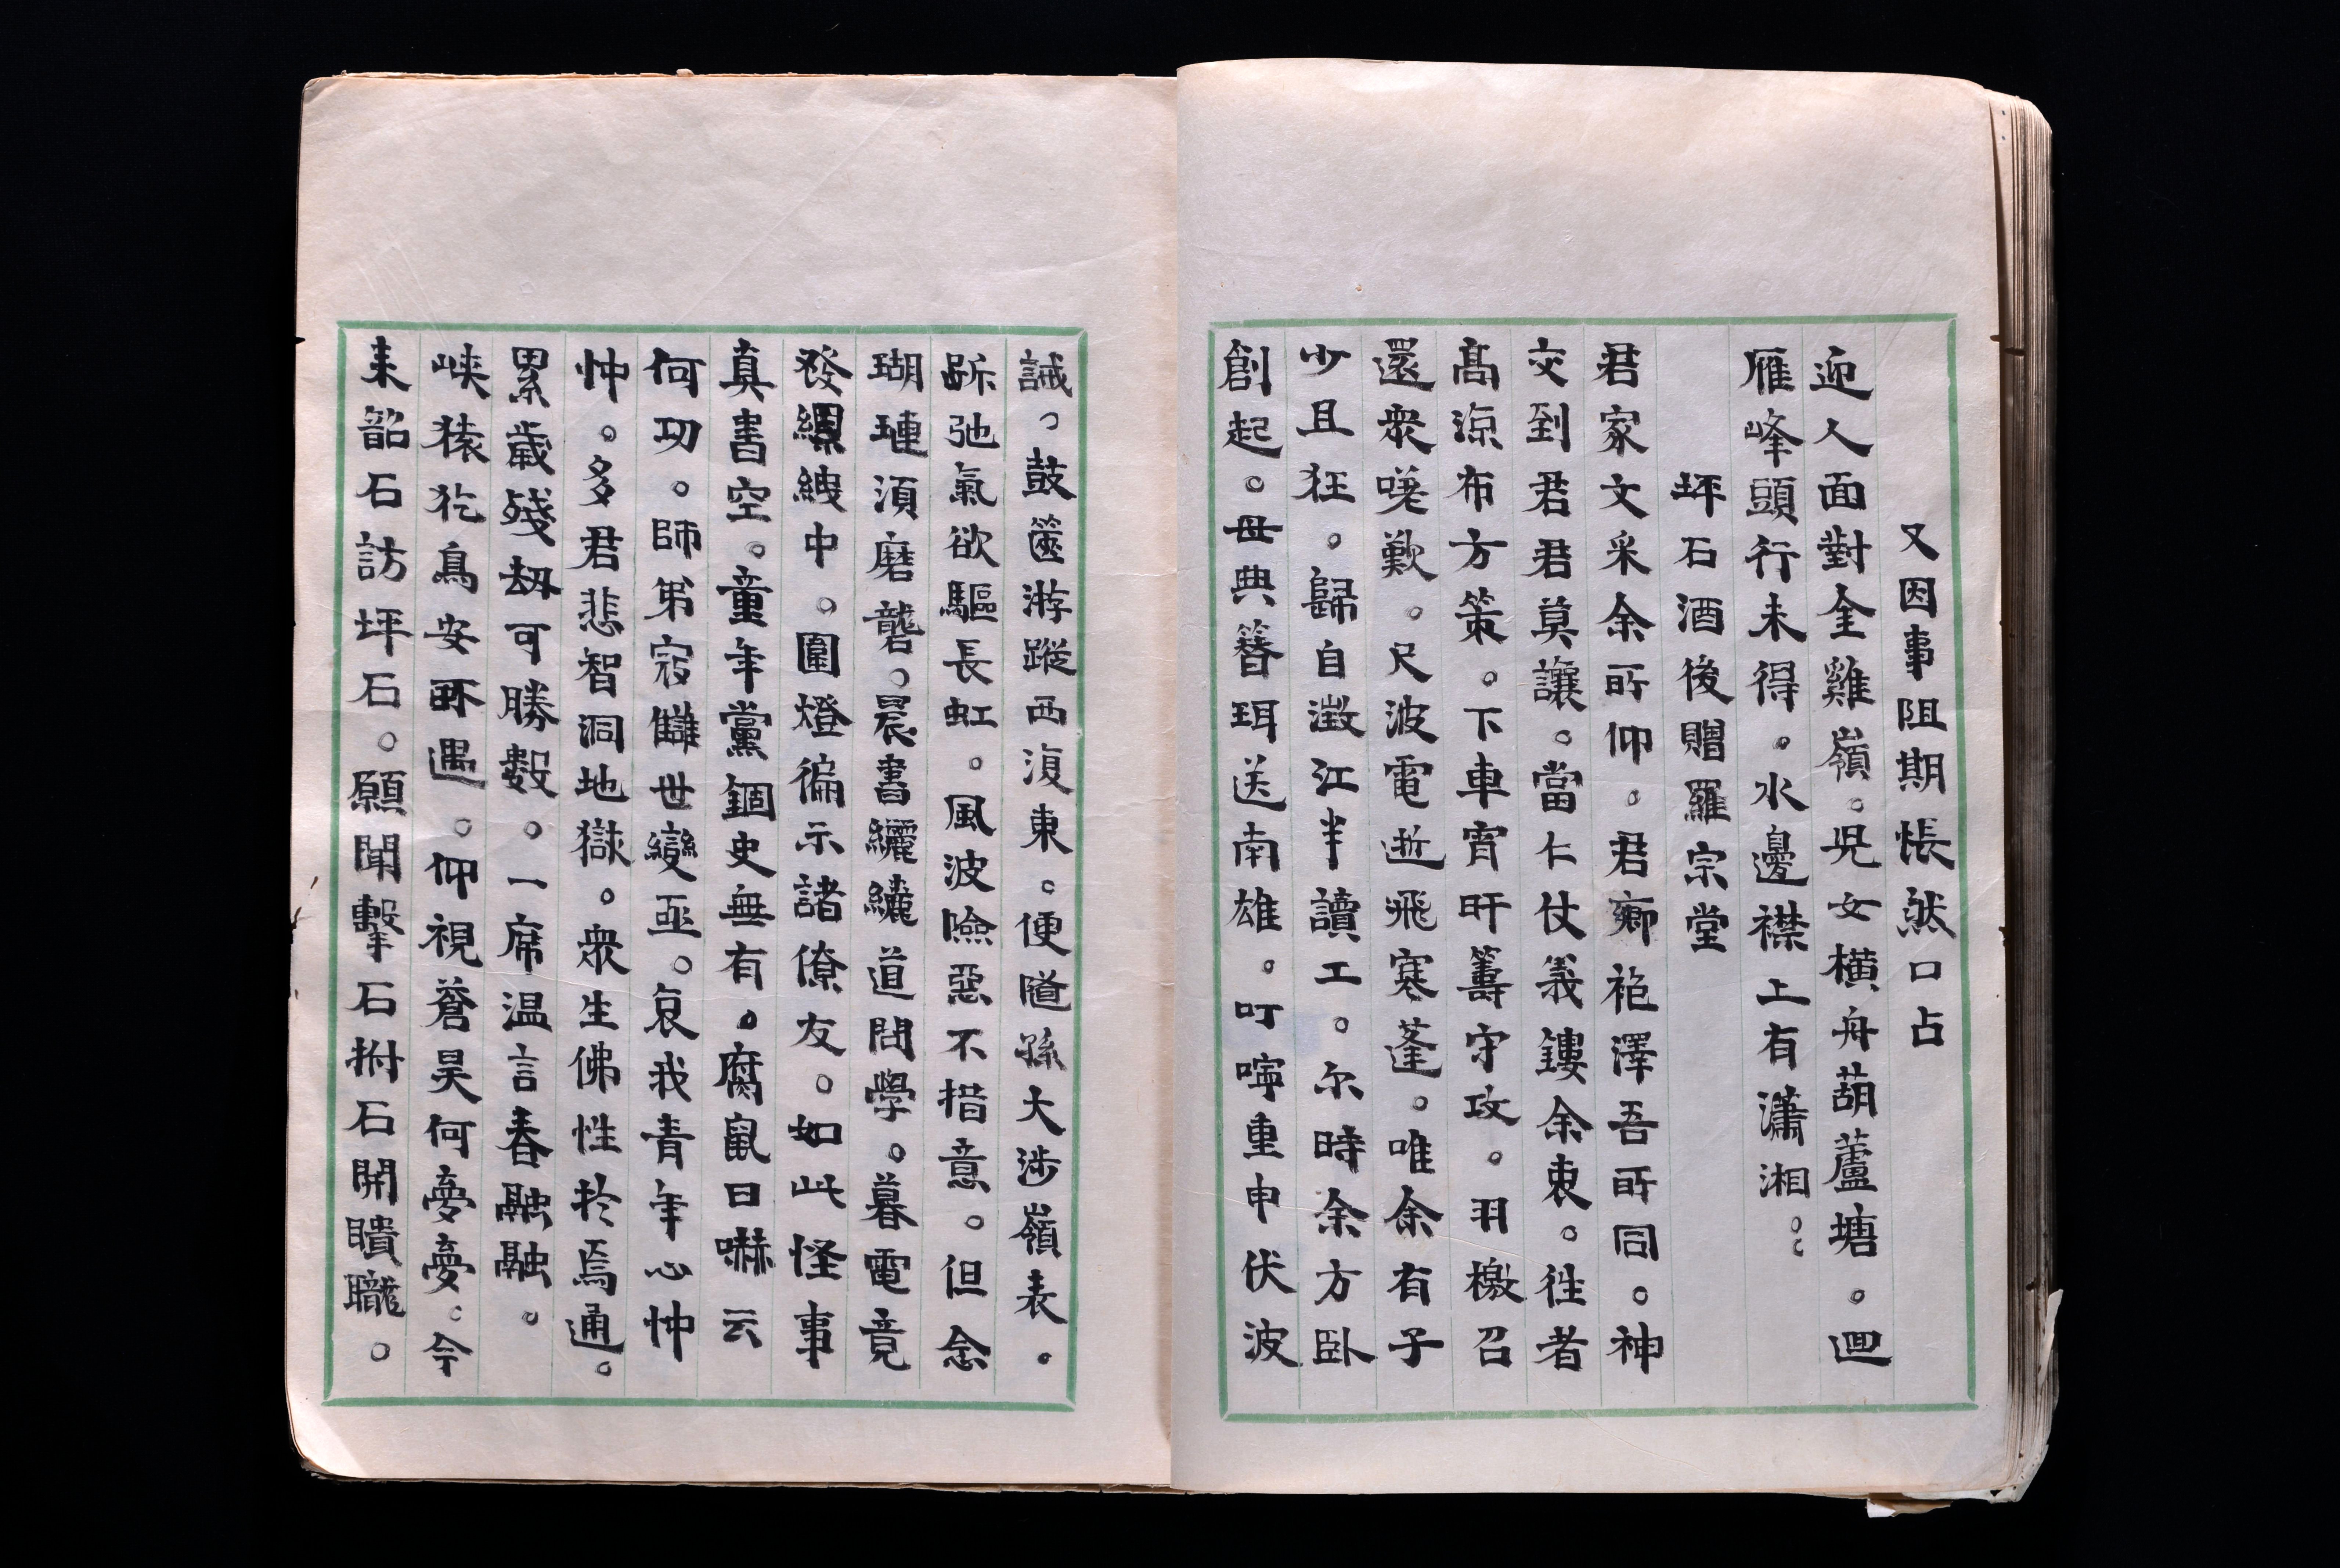 又因事阻期悵然口占
迎人面對金雞嶺。兒女橫舟葫蘆塘。迴
雁峰頭行未得。水邊襟上有瀟湘。
坪石酒後贈羅宗堂
君家文采余所仰。君鄉袍澤吾所同。神
交到君君莫讓。當仁仗義鏤余衷。往者
高涼布方策。下車宵旰籌守攻。羽檄召
還衆嗟歎。尺波電逝飛寒蓬。唯余有子
少且狂。歸自澂江半讀工。尔時余方臥
創起。毋典簪珥送南雄。叮嚀重申伏波
誡。鼓篋游蹤西復東。便隨孫大涉嶺表。
跅弛氣欲驅長虹。風波險惡不措意。但念
瑚璉須磨礱。晨書纚纚道問學。暮電竟
發縲絏中。圍燈徧示諸僚友。如此怪事
真書空。童年黨錮史無有。腐鼠日嚇云
何功。師弟寇讎世變亟。哀我青年心忡
忡。多君悲智洞地獄。衆生佛性於焉通。
累歲殘劫可勝數。一席温言春融融。
峽猿犵鳥安所遇。仰視蒼昊何夢夢。今
來韶石訪坪石。願聞擊石拊石開聵聾。